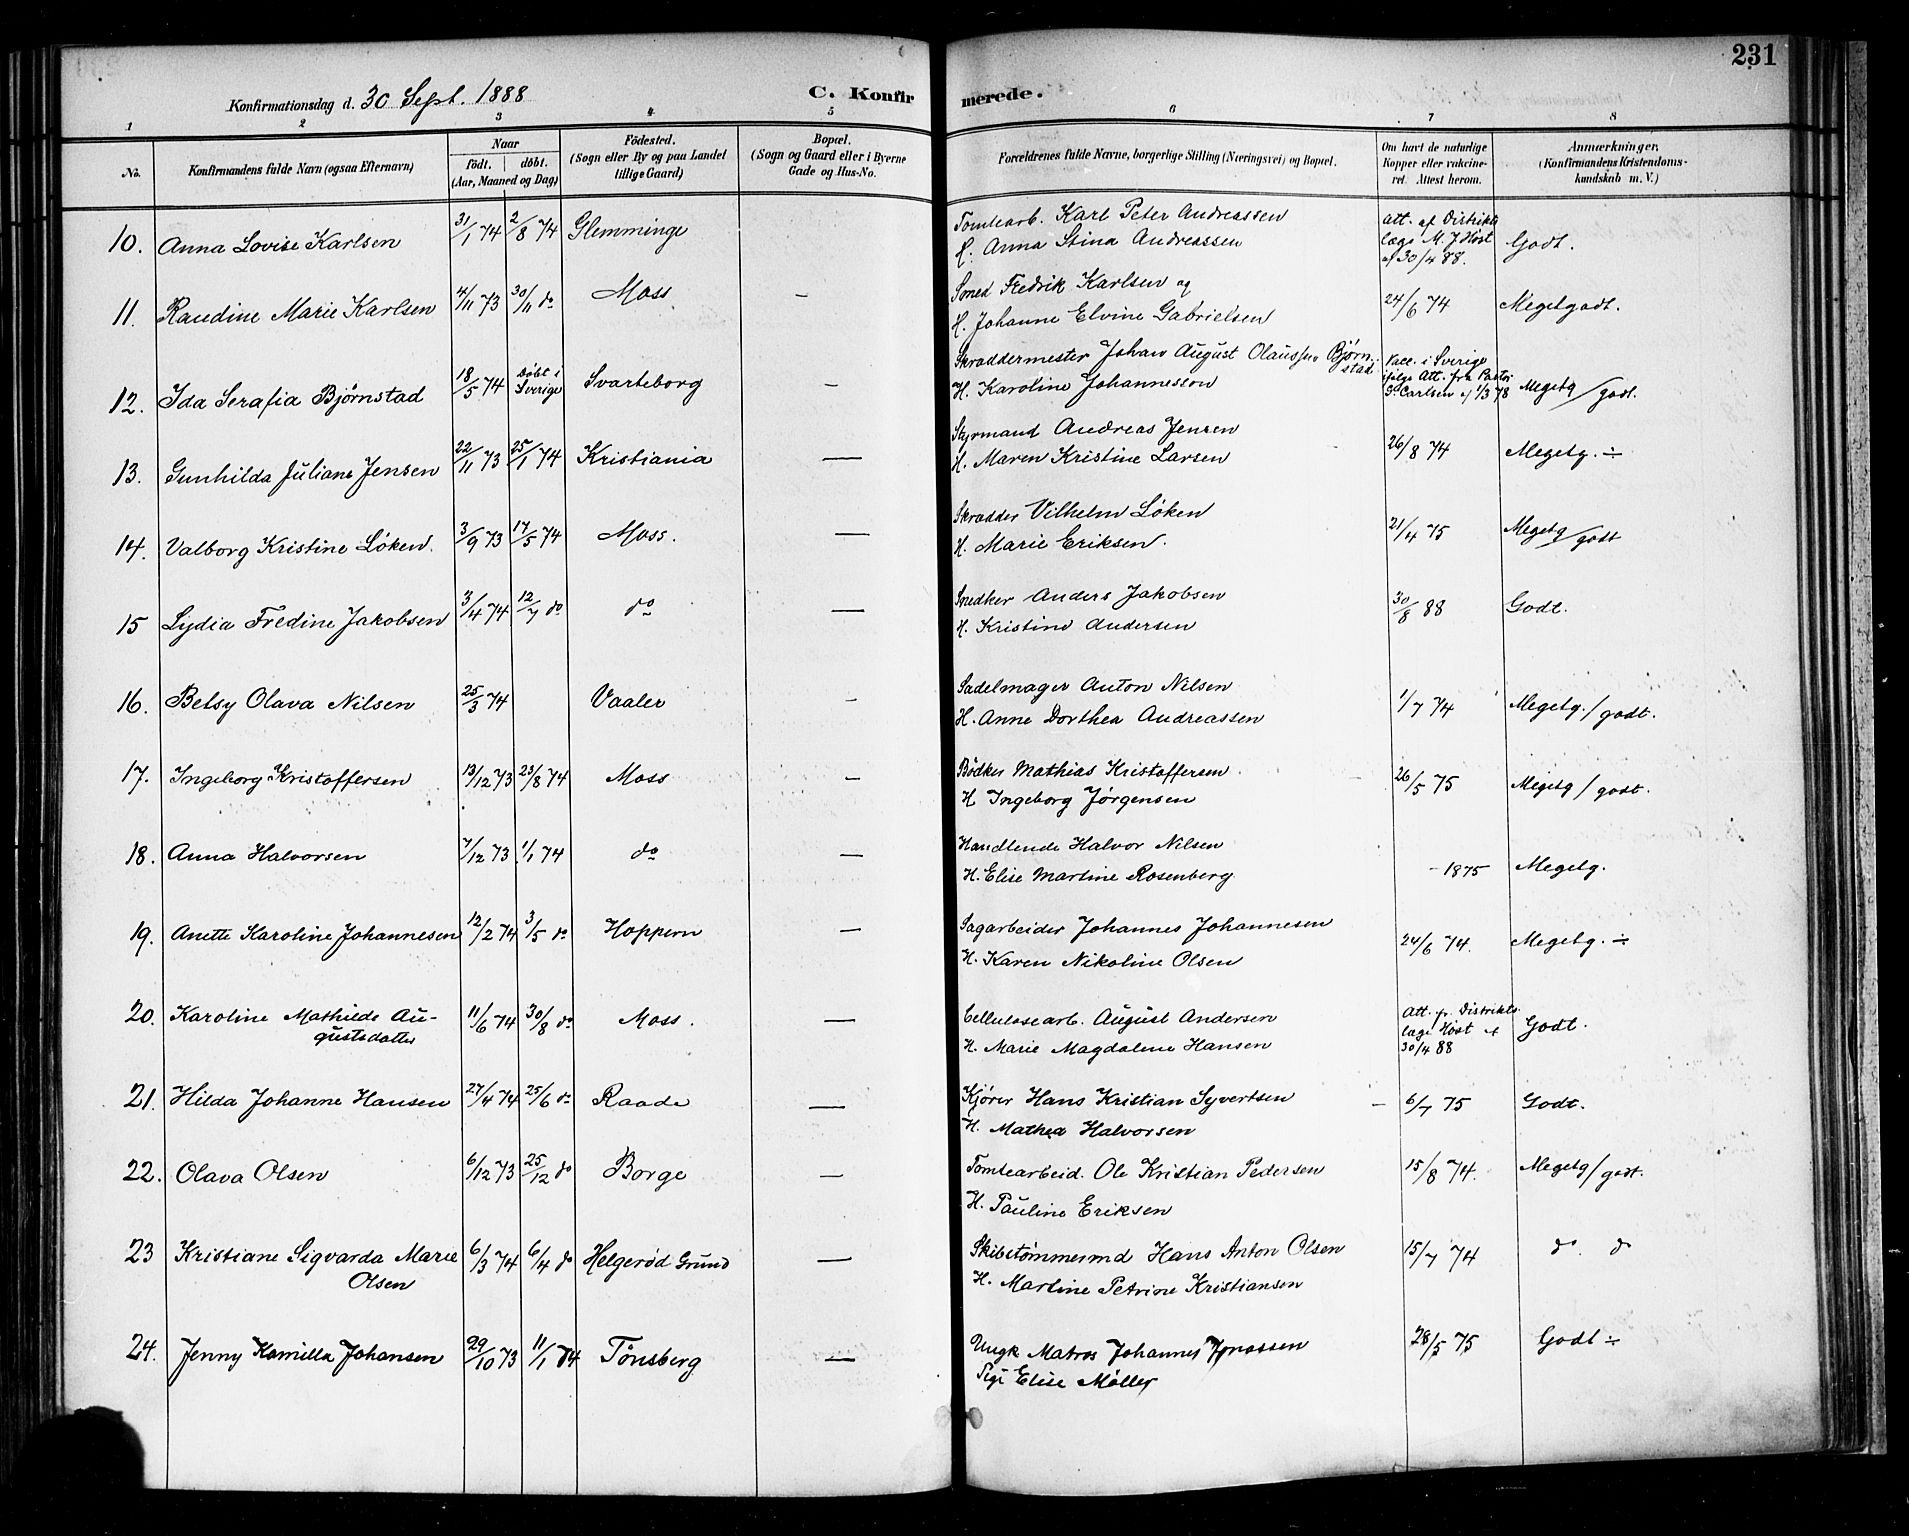 231
Konfirmationsdag d. 30 Sept. 1888
C. Konfirmerede.
1 2 3 4 5 6 7 8
No.
Konfirmandens fulde Navn (ogsaa Efternavn)
Naar
födt. döbt.
(Aar, Maaned og Dag)
Födested.
(Sogn eller By og paa Landet
tillige Gaard)
Bopæl.
(Sogn og Gaard eller i Byerne
Gade og Hus-No.
Forældrenes fulde Navne, borgerlige Stilling (Næringsvei) og Bopæl.
Om havt de naturlige
Kopper eller vakcine-
ret. Attest herom.
Anmærkninger.
(Konfirmandens Kristendoms-
kundskab m. V.)
10. Anna Lovise Karlsen 31/1 74 2/8 74 Glemminge
Tomtearb. Karl Peter Andreassen
H. Anna Stina Andreassen
Att. af Distrikts
læge M. J Høst
af 30/4 88.
Godt.
11. Raudine Marie Karlsen 4/11 73 30/11 do Moss —
Smed Fredrik Karlsen og
H. Johanne Elvine Gabrielsen
24/6 74 Megetgodt.
12. Ida Serafia Bjørnstad 18/5 74 Døbt i
Sverige Svarteborg —
Skraddermester Johan August Olaussen Bjørn-
stad
H. Karoline Johannesson
Vacc. i Sverige
ifølge Att. fra Pastor
Carlsen af 1/3 78
Megetg/godt.
13. Gunhilda Juliane Jensen 22/11 73 25/1 74 Kristiania —
Styrmand Andreas Jensen
H. Maren Kristine Larsen
26/8 74 Megetg. ÷
14. Valborg Kristine Løken. 3/9 73 17/5 74 Moss. —
Skradder Vilhelm Løken
H. Marie Eriksen.
21/4 75 Megetg/godt
15 Lydia Fredine Jakobsen 3/4 74 12/7 do do —
Snedker Anders Jakobsen
H. Kristine Andersen
30/8 88 Godt.
16. Betsy Olava Nilsen 25/3 74 Vaaler —
Sadelmager Anton Nilsen
H. Anne Dorthea Andreassen
1/7 74 Megetg./godt.
17. Ingeborg Kristoffersen 13/12 73 23/8 74 Moss —
Bödker Mathias Kristoffersen
H Ingeborg Jørgensen
26/5 75 Megetg/godt.
18. Anna Halvorsen 7/12 73 1/1 74 do —
Handlende Halvor Nilsen
H. Elise Martine Rosenberg
- 1875 Megetg.
19. Anette Karoline Johannesen 12/2 74 3/5 do Hoppern —
Sagarbeider Johannes Johannesen
H. Karen Nikoline Olsen
24/6 74. Megetg. ÷
20. Karoline Mathilde Au-
gustsdatter 11/6 74 30/8 do Moss. —
Cellulosearb. August Andersen
H. Marie Magdalene Hansen
Att. fr. Distrikts
læge Høst af
30/4 88
Godt.
21. Hilda Johanne Hansen 27/4 74 25/6 do Raade —
Kjører Hans Kristian Syvertsen
H. Mathea Halvorsen
6/7 75 Godt.
22. Olava Olsen 6/12 73 25/12 do Borge —
Tomtearbeid. Ole Kristian Pedersen
H. Pauline Eriksen
15/8 74. Megetg/godt.
23 Kristiane Sigvarda Marie
Olsen 6/3 74 6/4 do Helgerød Grund —
Skibstømmermd Hans Anton Olsen
H. Martine Petrine Kristiansen
15/7 74 do do
24. Jenny Kamilla Johansen 29/10 73 11/1 74 Tönsberg —
Ungk Matros Johannes Jonassen
Pige Elise Møller
28/5 75 Godt ÷